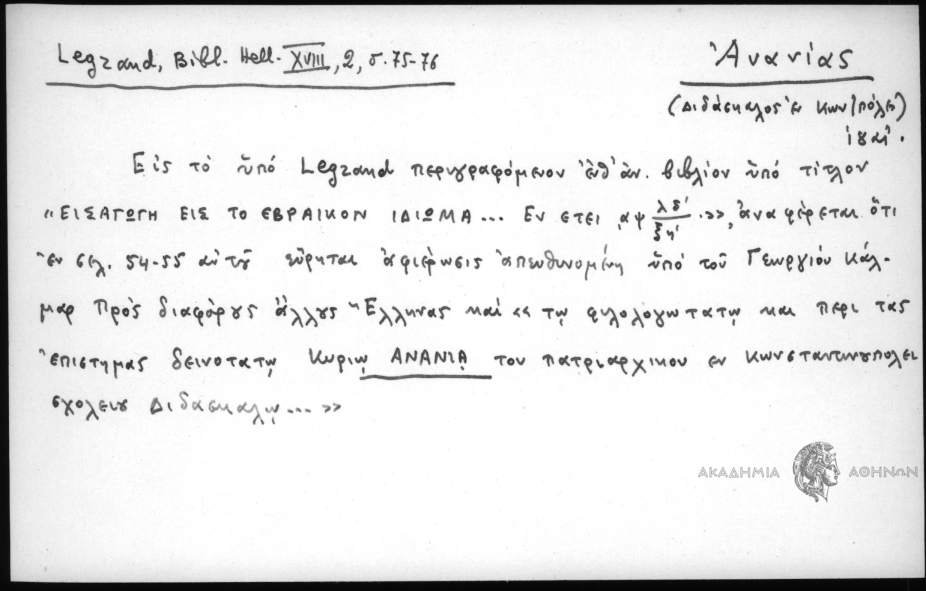 Legrand, Bibl. Hell. XVIII, 2, σ. 75-76
Ἀνανίας
(Διδάσκαλος ἐν Κων/πόλει)
ιηʹ αἰ.
Εἰς τὸ ὑπό Legrand περιγραφόμενον ἐνθ' ἀν. βιβλίον ὑπό τίτλον
"ΕΙΣΑΓΩΓΗ ΕΙΣ ΤΟ ΕΒΡΑΙΚΟΝ ΙΔΙΩΜΑ... Εν ετει ͵αψ λδ'/ξη' .>>, ἀναφέρεται ὅτι
ἐν σελ. 54-55 αὐτοῦ εὕρηται ἀφιέρωσις ἀπευθυνομένη ὑπό τοῦ Γεωργίου Κάλ-
μαρ Πρὸς διαφόρους ἄλλους Ἕλληνας καί << τῳ φιλολογωτατῳ και περι τας
ἐπιστημας δεινοτατῳ Κυριῳ ΑΝΑΝΙᾼ του πατριαρχικου εν Κωνσταντινουπολει
σχολειου Διδασκαλῳ... >>
ΑΚΑΔΗΜΙΑ ΑΘΗΝΩΝ